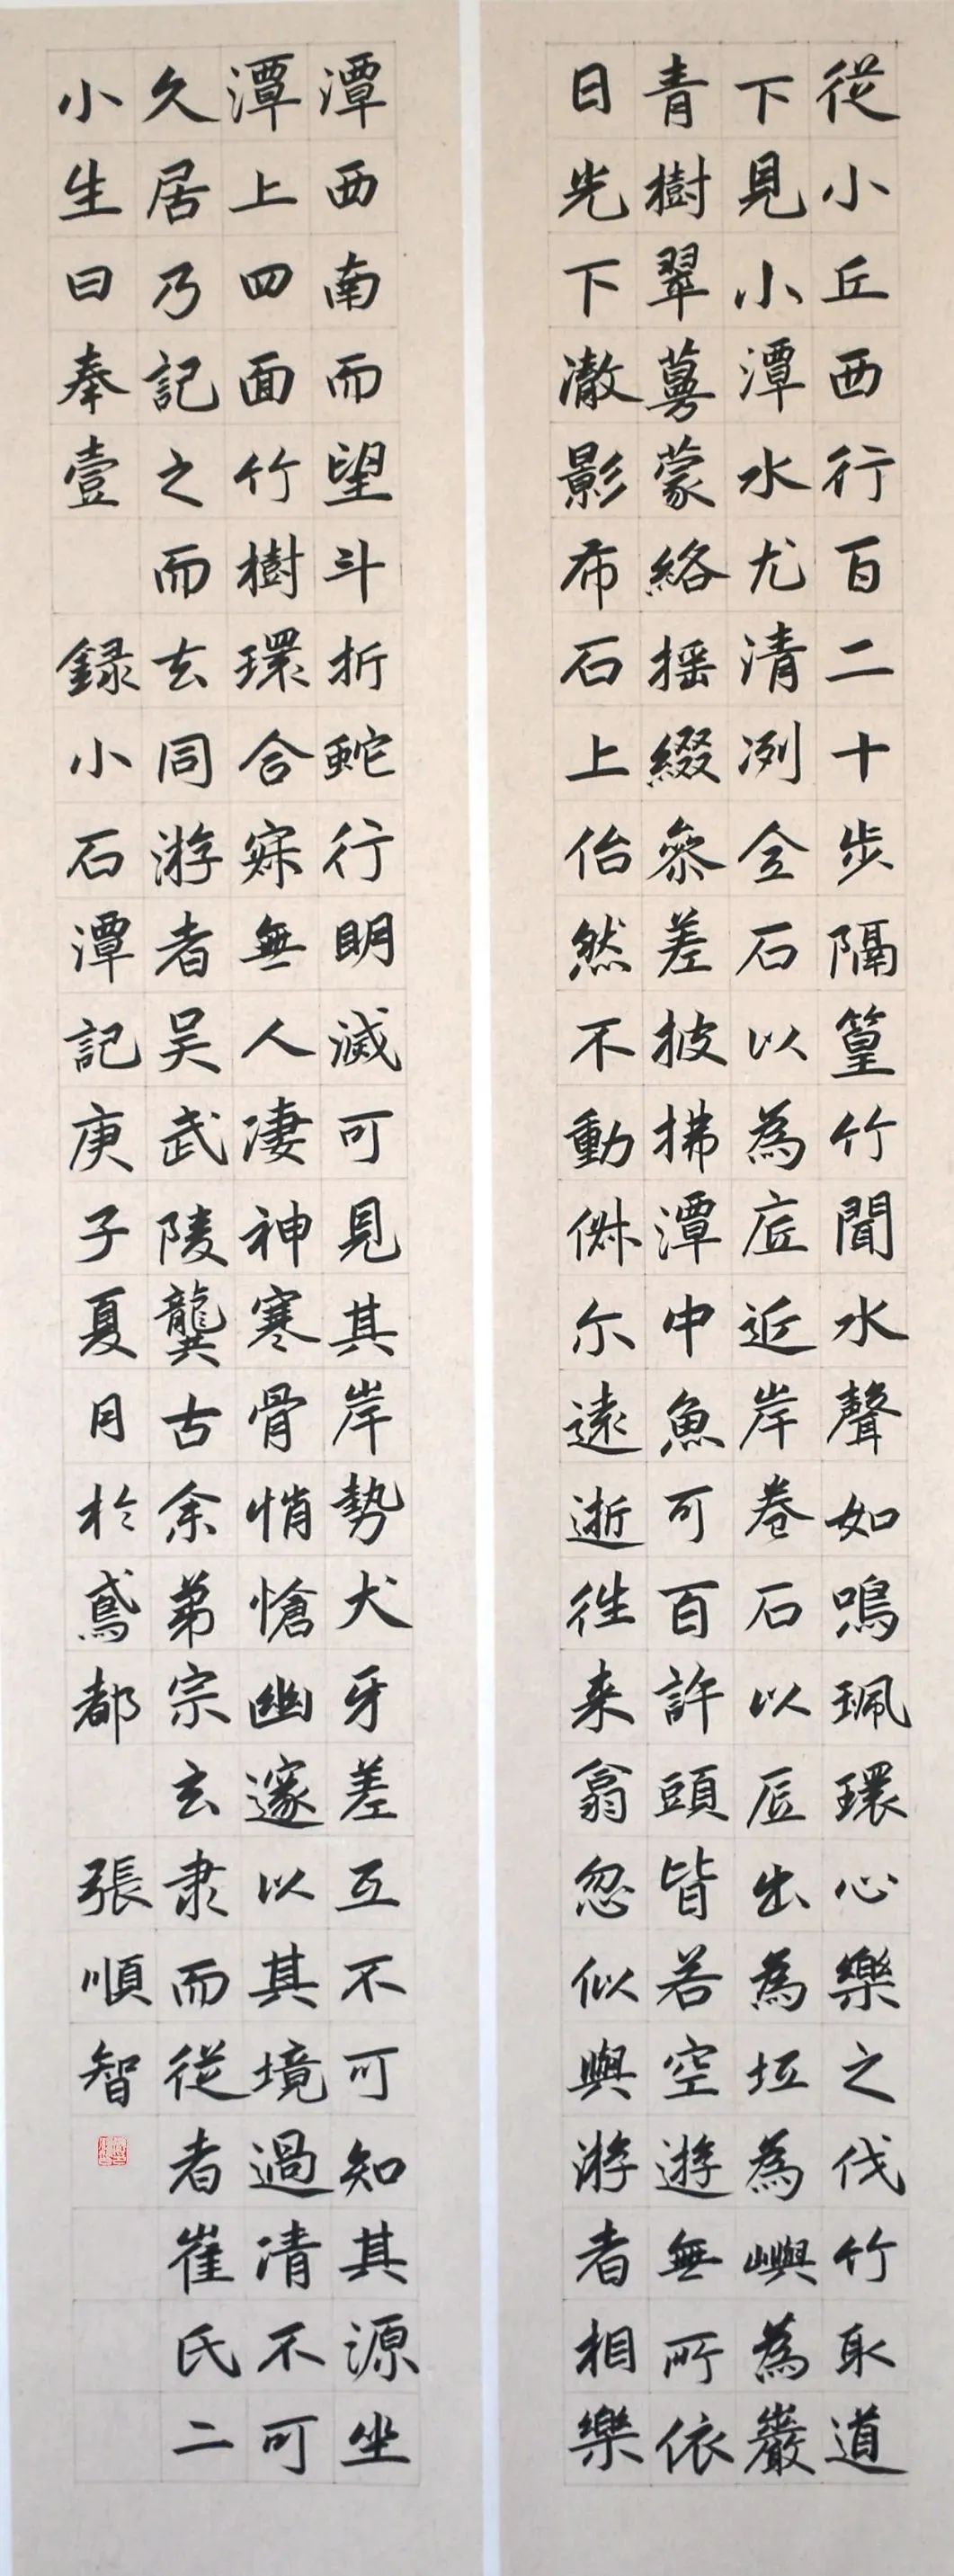 從小丘西行百二十步隔篁竹聞水聲如鳴珮環心樂之伐竹取道
下見小潭水尤清冽全石以為底近岸卷石以底出為坻為嶼為巖
青樹翠蔓蒙絡搖綴參差披拂潭中魚可百許頭皆若空遊無所依
日光下澈影布石上佁然不動俶尔遠逝往来翕忽似與游者相樂
潭西南而望斗折蛇行明滅可見其岸勢犬牙差互不可知其源坐
潭上四面竹樹環合寂無人凄神寒骨悄愴幽邃以其境過清不可
久居乃記之而去同游者吳武陵龔古余弟宗玄隸而從者崔氏二
小生曰奉壹 録小石潭記庚子夏月於鳶都 張順智